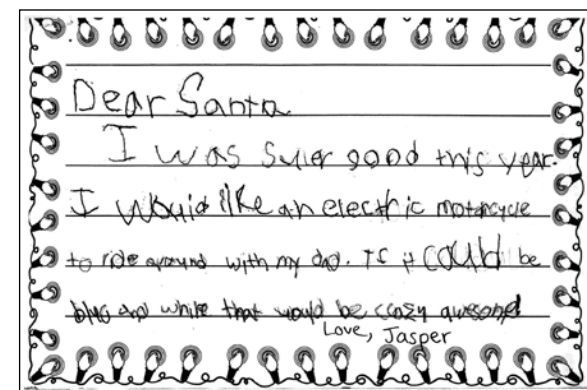 Dear Santa
I was super good this year.
I would like an electric motorcycle
to ride around with my dad. If it could be
blue and white that would be crazy awesome
Love, Jasper